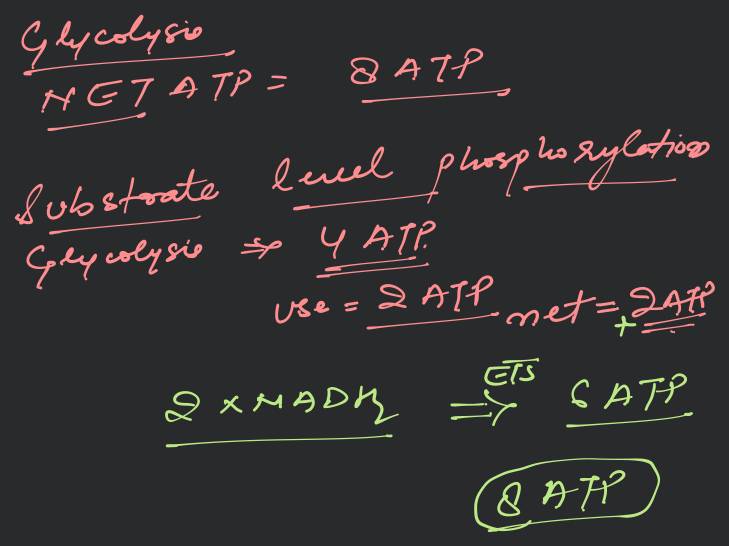 Glycolysis
NET ATP = 8 ATP
Substrate level phosphorylation
Glycolysis ⇒ 4 ATP.
use = 2 ATP net = 2ATP
+
2 x NADH2 ETS ⇒ 6 ATP
8 ATP